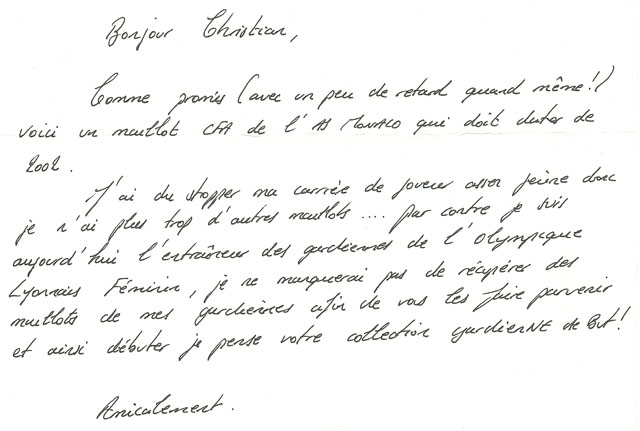 Bonjour Christian,
Comme promis (avec un peu de retard quand même!)
voici un maillot CFA de l'AS MONACO qui doit dater de
2002.
J'ai du stopper ma carrière de joueur assez jeune donc
je n'ai plus trop d'autres maillots .... par contre je suis
aujourd'hui l'entraîneur des gardiennes de l'Olympique
Lyonnais Féminin, je ne manquerai pas de récupérer des
maillots de mes gardiennes afin de vous les faire parvenir
et ainsi débuter je pense votre collection gardienNE de But!
Amicalement.